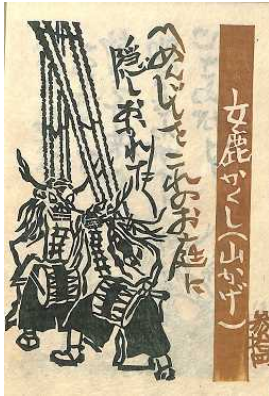 女鹿かくし(山かげ)
〽めんじしをこれのお庭に
隠しおかれた